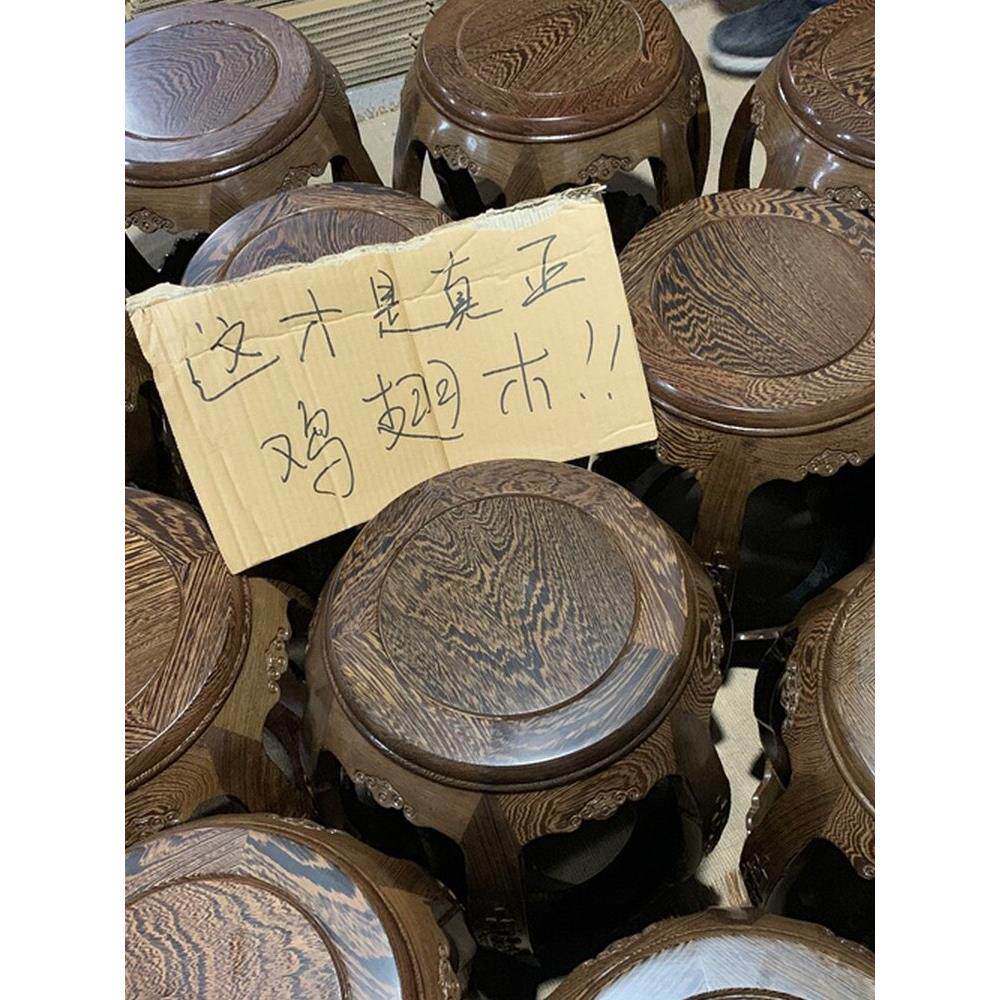 这才是真正
鸡翅木!!